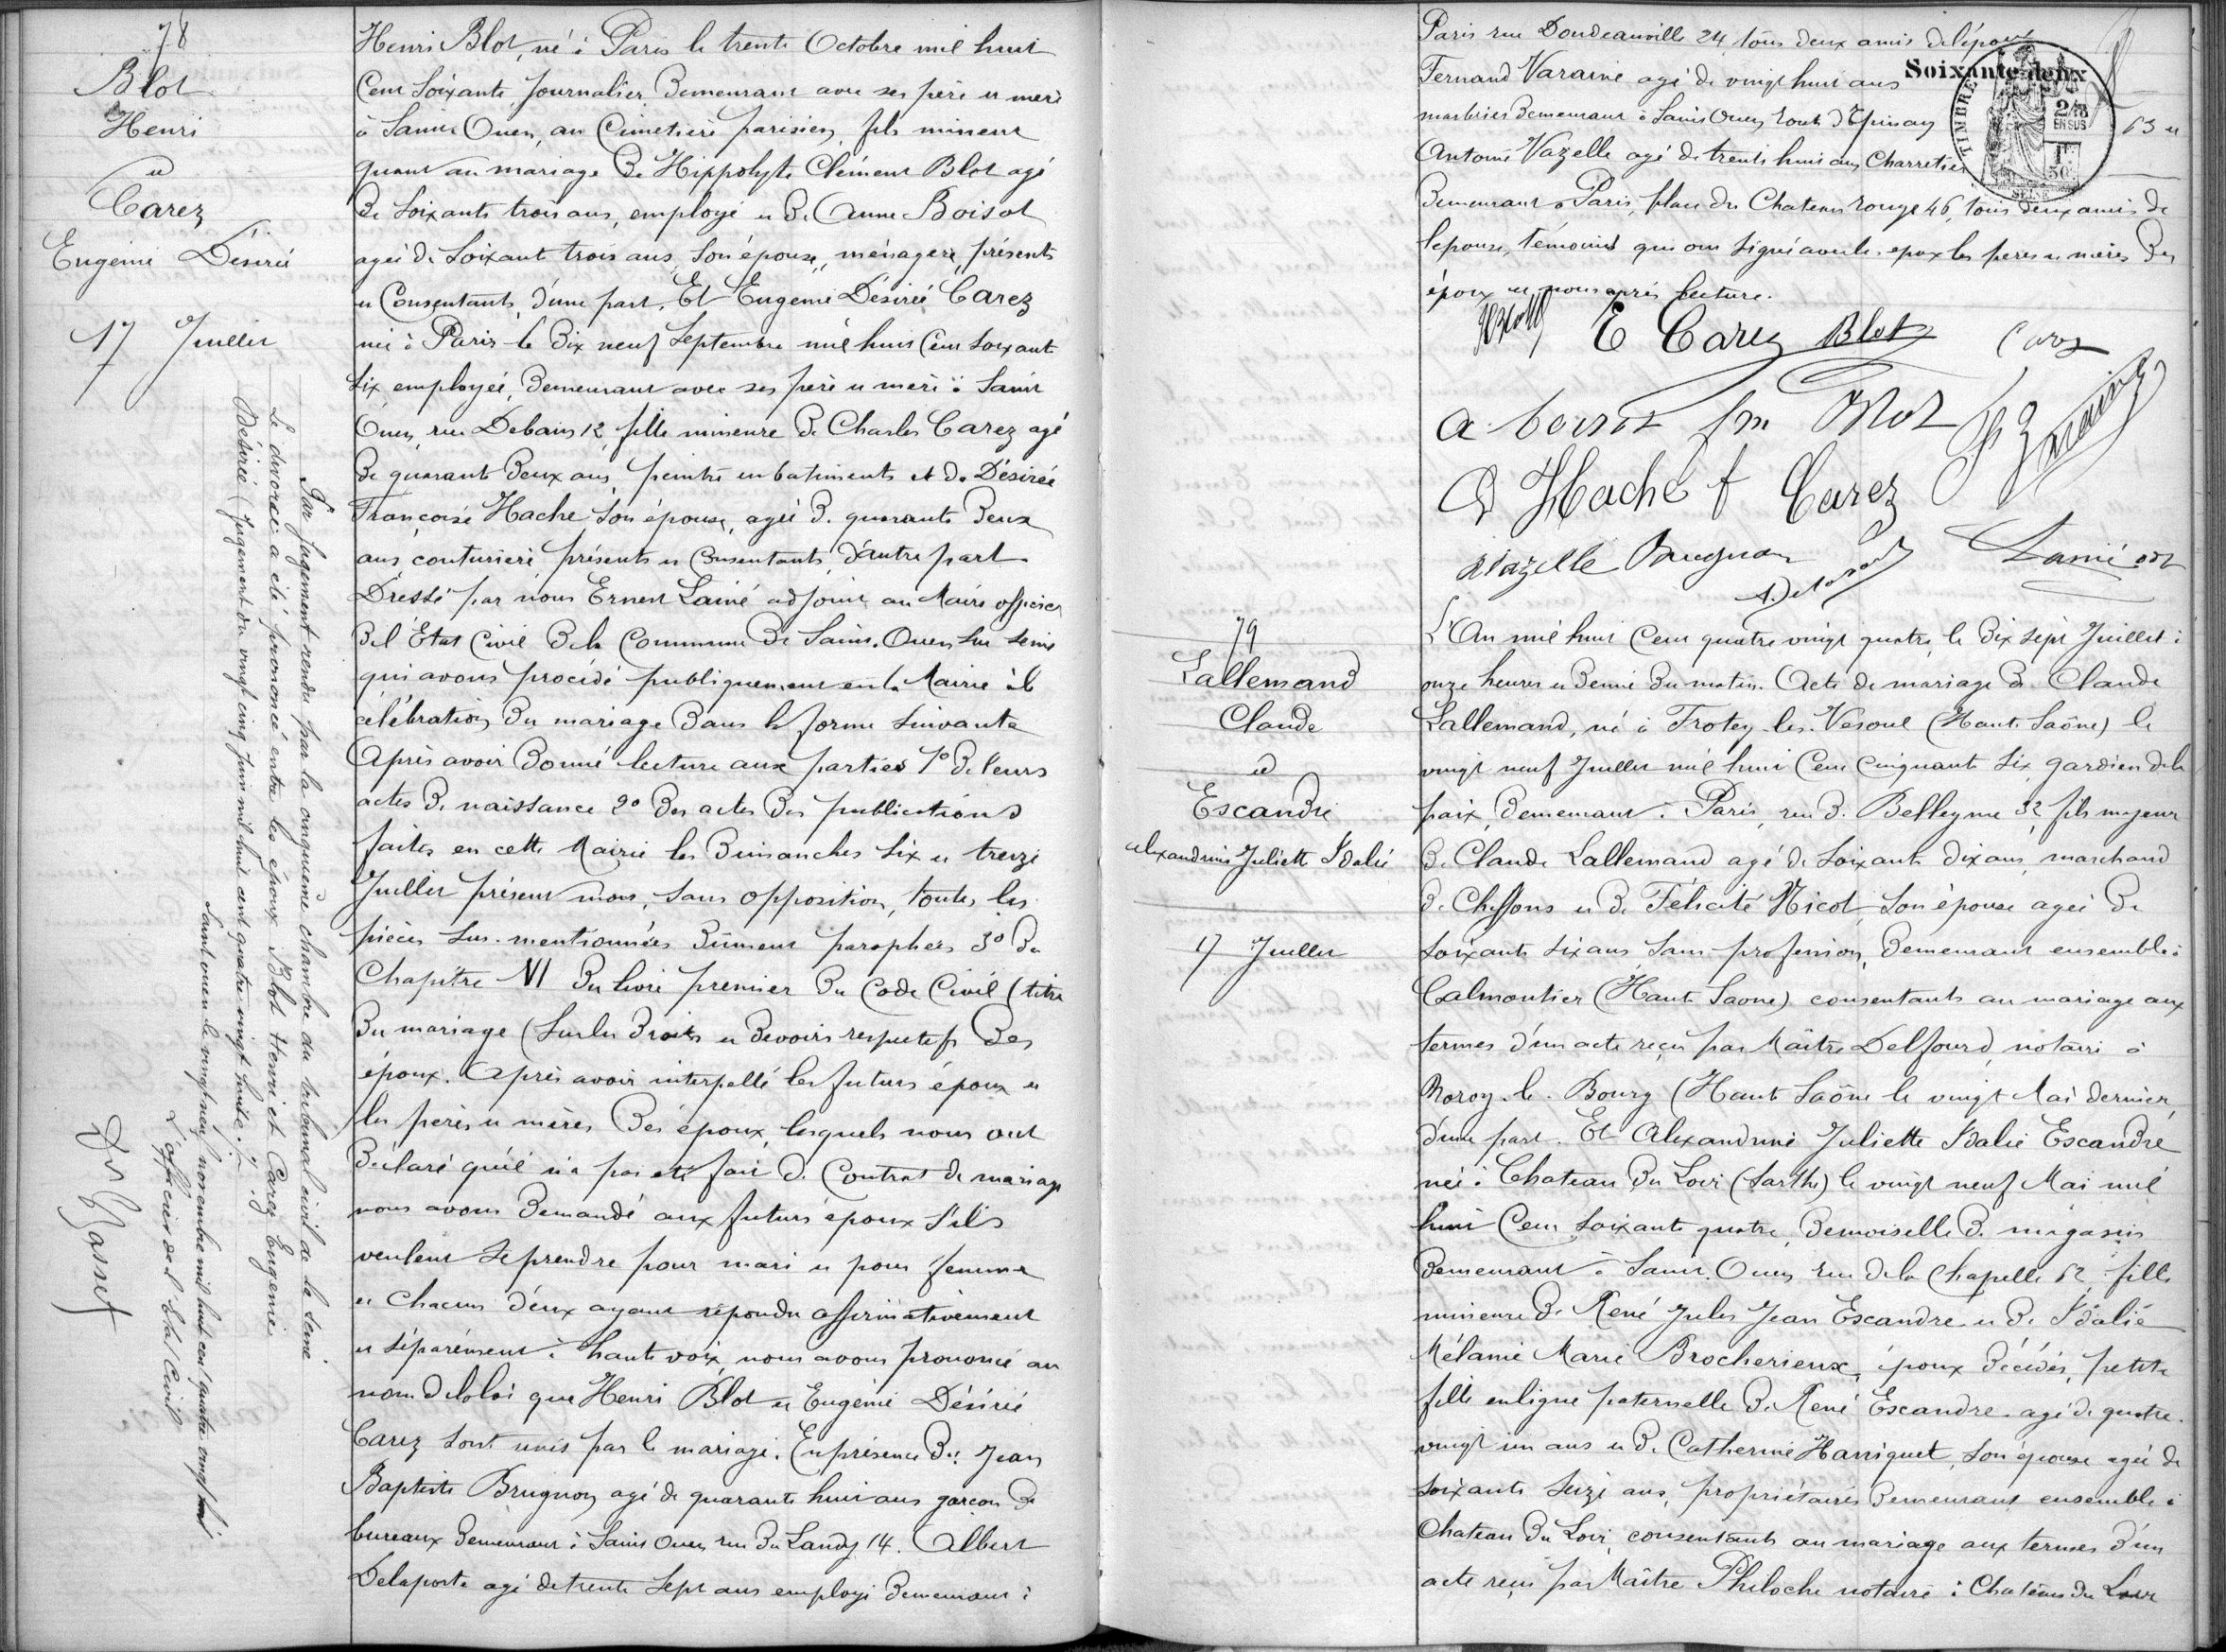 78
Blot
Henri
et
Carez
Eugénie Désirée
17 Juillet
Par jugement rendu par la cinquième chambre du tribunal civil de la Seine
Le divorce a été prononcé entre les époux Blot Henri et Carez Eugénie
Désirée (Jugement du vingt cinq Juin mil huit cent quatre vingt huit).
Saint ouen le vingt neuf novembre mil huit cent quatre vingt huit
L'officier de l'Etat Civil
Dr Basset
Henri Blot, né à Paris le trente Octobre mil huit
Cent Soixante, Journalier, Demeurant avec ses père et mère
à Saint Ouen, au Cimetière parisien, fils mineur
quant au mariage De Hippolyte Clément Blot agé
De Soixante trois ans, employé et De Anne Boisot
agée de Soixante trois ans, Son épouse, ménagère, présents
et Consentants, d'une part. Et Eugénie Désirée Carez
née à Paris le Dix neuf Septembre mil huit Cent Soixante
Six, employée, Demeurant avec ses père et mère à Saint
Ouen, rue Debain 12, fille mineure De Charles Carez agé
De quarante Deux ans, peintre en batiments et de Désirée
Françoise Hache, Son épouse, agée De quarante Deux
ans, couturière, présents et Consentants, D'autre part
Dressé par nous Ernest Lainé adjoint au Maire officier
De l'État Civil De la Commune De Saint-Ouen Sur Seine
qui avons procédé publiquement en la Mairie à la
célébration Du mariage Dans la forme Suivante
Après avoir Donné lecture aux parties 1º De leurs
actes De naissance 2º Des actes Des publications
faites en cette Mairie les Dimanches Six et treize
Juillet présent mois, Sans opposition, toutes les
pièces Sus-mentionnées Dûment paraphées 3º Du
Chapitre VI Du livre premier Du Code Civil (titre
Du mariage (Sur les Droits et Devoirs respectifs Des
époux. Après avoir interpellé les futurs époux et
les pères et mères Des époux, lesquels nous ont
Déclaré qu'il n'a pas été fait De Contrat de mariage
nous avons Demandé aux futurs époux S'ils
veulent Se prendre pour mari et pour femme
et Chacun d'eux ayant répondu affirmativement
et Séparément à haute voix, nous avons prononcé au
nom de la loi que Henri Blot et Eugénie Désirée
Carez Sont unis par le mariage. En présence De: Jean
Baptiste Brugnon agé de quarante huit ans garçon De
bureaux Demeurant à Saint Ouen rue Du Landy 14. Albert
Delaporte agé de trente Sept ans employé Demeurant à
Paris rue Doudeauville 24, tous deux amis de l'époux
Soixante-deux
Fernand Varaine agé de vingt huit ans
marbrier Demeurant à Saint Ouen, route D'Epinay 63 et
TIMBRE
2/10
EN SUS
1F
50C
SEINE
Antoine Vazelle agé de trente huit ans Charretier
Demeurant à Paris, place Du Chateau rouge 46, tous deux amis de
l'épouse, témoins qui ont Signé avec les époux les pères et mères Des
époux et nous après lecture.
HBlot E Carez Blot Carez
a boisot fm Blot F Varaine
D Hache f Carez
Vazelle Brugnon Lainé adt
A Delaporte
79
Lallemand
Claude
et
Escandre
Alexandrine Juliette Idalie
17 Juillet
L'An mil huit Cent quatre vingt quatre, le Dix Sept Juillet à
onze heures et Demie Du matin. Acte de mariage De Claude
Lallemand, né à Frotey-les-Vesoul (Haute Saône) le
vingt neuf Juillet mil huit Cent Cinquante Six, gardien de la
paix, Demeurant à Paris, rue De Belleyme 32, fils majeur
De Claude Lallemand agé de Soixante Dix ans, marchand
De Chiffons et De Félicité Nicot, Son épouse agée De
Soixante Six ans Sans profession, Demeurant ensemble à
Calmoutier (Haute Saone) consentants au mariage aux
termes d'un acte reçu par Maître Delfourd, notaire à
Noroy-le-Bourg (Haute Saône le vingt Mai dernier,
d'une part. Et Alexandrine Juliette Idalie Escandre
née à Chateau Du Loir (Sarthe) le vingt neuf Mai mil
huit Cent Soixante quatre, Demoiselle De magasin
Demeurant à Saint-Ouen, rue De la Chapelle 62, fille
mineure De René Jules Jean Escandre et De Idalie
Mélanie Marie Brocherieux, époux décédés, petite
fille en ligne paternelle De René Escandre agé de quatre-
vingt un ans et De Catherine Harriguet, Son épouse agée de
Soixante Seize ans, propriétaires Demeurant ensemble à
Chateau Du Loir, consentants au mariage aux termes D'un
acte reçu par Maître Philoche notaire à Chateau Du Loir